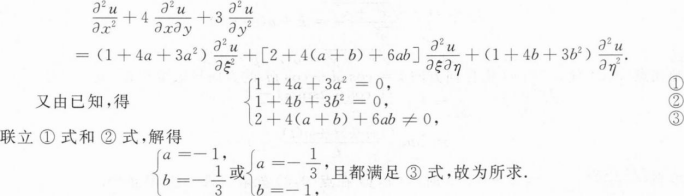 ∂²u/∂x² + 4 ∂²u/∂x∂y + 3 ∂²u/∂y²
= (1+4a+3a²) ∂²u/∂ξ² + [2+4(a+b)+6ab] ∂²u/∂ξ∂η + (1+4b+3b²) ∂²u/∂η².
{1+4a+3a² = 0, ①
又由已知,得 {1+4b+3b² = 0, ②
{2+4(a+b)+6ab ≠ 0, ③
联立 ① 式和 ② 式,解得
{a =−1, b =−1/3 或 {a =−1/3, b =−1, 且都满足 ③ 式,故为所求.